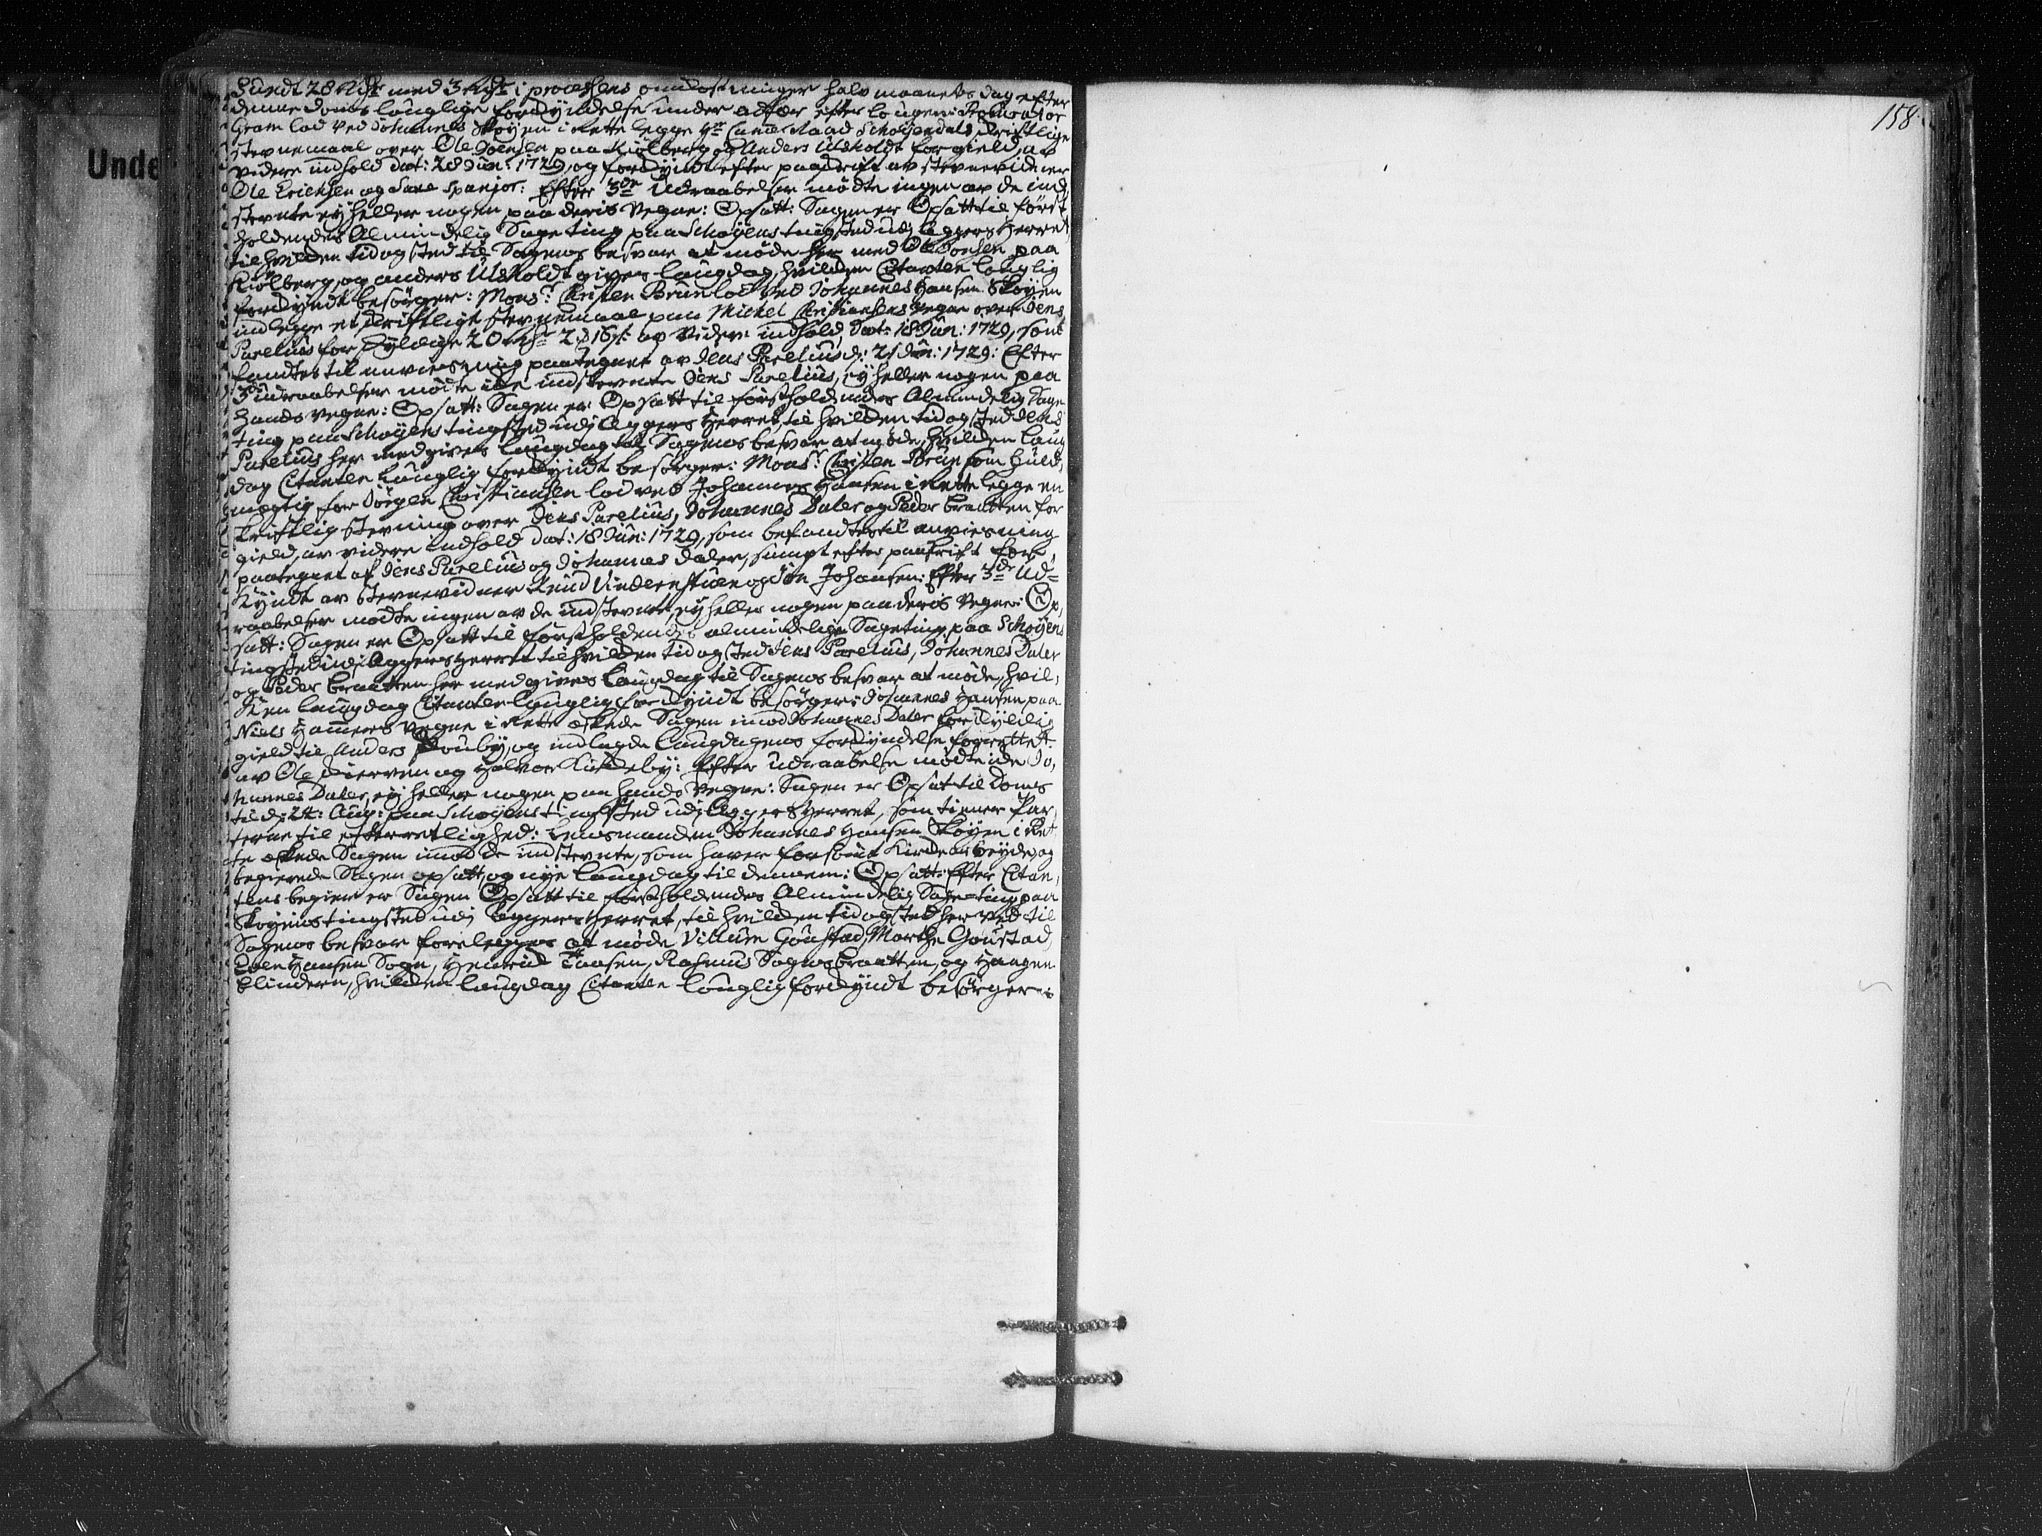 Sundt 28 Rdr med 3 Rdr i processens omkostninger halv maanets dag efter
denne doms louglige forkyndelse under adfær efter lougen: Procurator
Gram lod ved Johannes Skøyen i Rette legge Hr Cancelliraad Schøyendals skriftlige
stevnemaal over Ole Joensen paa Kiølberg og Anders Utskoldt for gield, av
videre indhold dat: 28 Jun: 1729, og forkyndt efter paaskrift av stevnevidner
Ole Erichsen og Lare Spanjor: Efter 3de Udraabelser mødte ingen av de ind,
stevnte ey heller nogen paa deris vegne: Opsatt: Sagen er Opsatt til først
holdendes Almindelig Sageting paa Schøyens tingsted udj Aggers Herret,
til hvilken tid og sted til Sagens besvar at møde her med Ole Joensen paa
Kiølberg, og anders Utskoldt gives laugdag, hvilken Citanten louglig
forkyndt besørger: Monsr Christen Brun lod ved Johannes Hansen Skøyen
indlegge et skriftligt stevnemaal paa Michel Christiansens vegne over Jens
Parelius for skyldige 20 rdr 2 16s: av videre indhold, dat: 18 Jun: 1729, som
fandtes til anviisning paategnet av Jens Parelius d: 21 Jun: 1729: Efter
3 udraabelser mødte icke indstevnte Jens Parelius, ey heller nogen paa
hands vegne: Opsatt: Sagen er Opsatt til først holdendes Almindelig Sage
ting paa Schøyens tingsted udj Aggers Herret, til hvilken tid og sted Jens
Parelius her med gives laugdag til Sagens besvar at møde, hvilken laug
dag Citanten louglig forkyndt besørger: Monsr Christen Brun som fuld,
mægtig for Jørgen Christiansen lod ved Johannes Hansen i Rette legge en
skriftlig stevning over Jens Parelius, Johannes Daler og Peder Braatten for
gield, av videre indhold dat: 18 Jun: 1729, som befandtes til anviisning
paategnet af Jens Parelius og Johannes Daler, sampt efter paaskrift for,
kyndt av stevnevidner Knud Vinderenstuen og Jon Johansen: Efter 3de Ud=
raabelser mødte ingen av de indstevnte, ey heller nogen paa deris Vegne: Op,
satt: Sagen er Opsatt til først holdendes almindelige Sageting paa Schøyens
tingsted udj Aggers Herret til hvilken tid og sted Jens Parelius, Johannes Daler
og Peder Braatten her med gives laugdag til Sagens besvar at møde, hvil,
ken laugdag Citanten louglig forkyndt besørger: Johannes Hansen paa
Niels Hamers vegne i Rette æskede Sagen imod Johannes Daler for skyldig
gield til Anders Bouby, og indlagde laugdagens forkyndelse forrettet
av Ole Dierven og Halvor Kickeby: Efter udraabelse mødte icke Jo,
hannes Daler, ey heller nogen paa hands vegne: Sagen er Opsatt til Doms
til d: 24: Aug: paa Schøyens tingsted udj Aggers Herret, som tiener Par
terne til efterretlighed: Lensmanden Johannes Hansen Skøyen i Ret
te æskede Sagen imod de indstevnte, som haver forsømt Kircke arbeyde og
begierede Sagen opsatt, og nye laugdag til dennem: Opsatt: Efter Citan,
tens begier er Sagen Opsatt til først holdendes Almindelig Sageting paa
Skøyens tingsted udj Aggers Herret, til hvilken tid og sted her ved til
Sagens besvar forelegges at møde Villum Goustad, Marthe Goustad,
Hansen Sogn, Henrick Taasen, Rasmus Sognsbraatten, og Haagen
Blindern, hvilken laugdag Citanten louglig forkyndt besørger
158
Unde